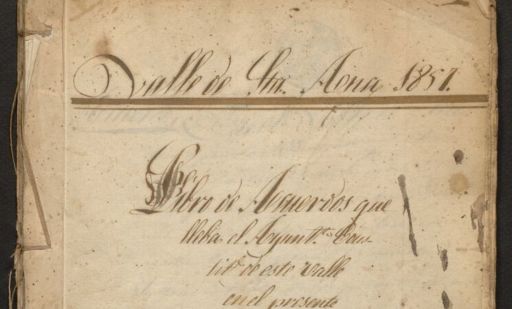 Valle de Sta. Ana 1857.
Libro de Acuerdos que
lleba el Ayunt.to Cons
tit.l de este Valle
en el presente